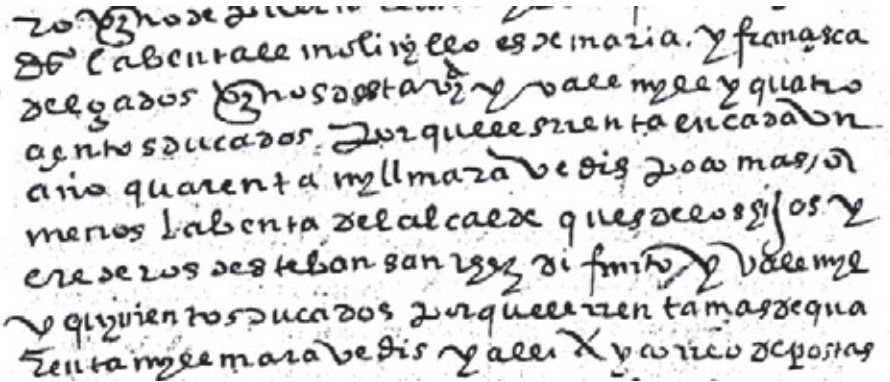 ro vzno de
dho la benta el molinyllo es de maria. y françisca
delgados vznos desta vª y vale myll y quatro
çientos ducados. porque les rrenta en cada vn
año quarenta myll maravedis poco mas, o
menos la benta del alcaide ques de los hijos y
erederos de esteban sanchez di funto, y vale myl
y quynientos ducados porque le rrenta mas de qua
renta myll maravedis y alli ay correo de postas